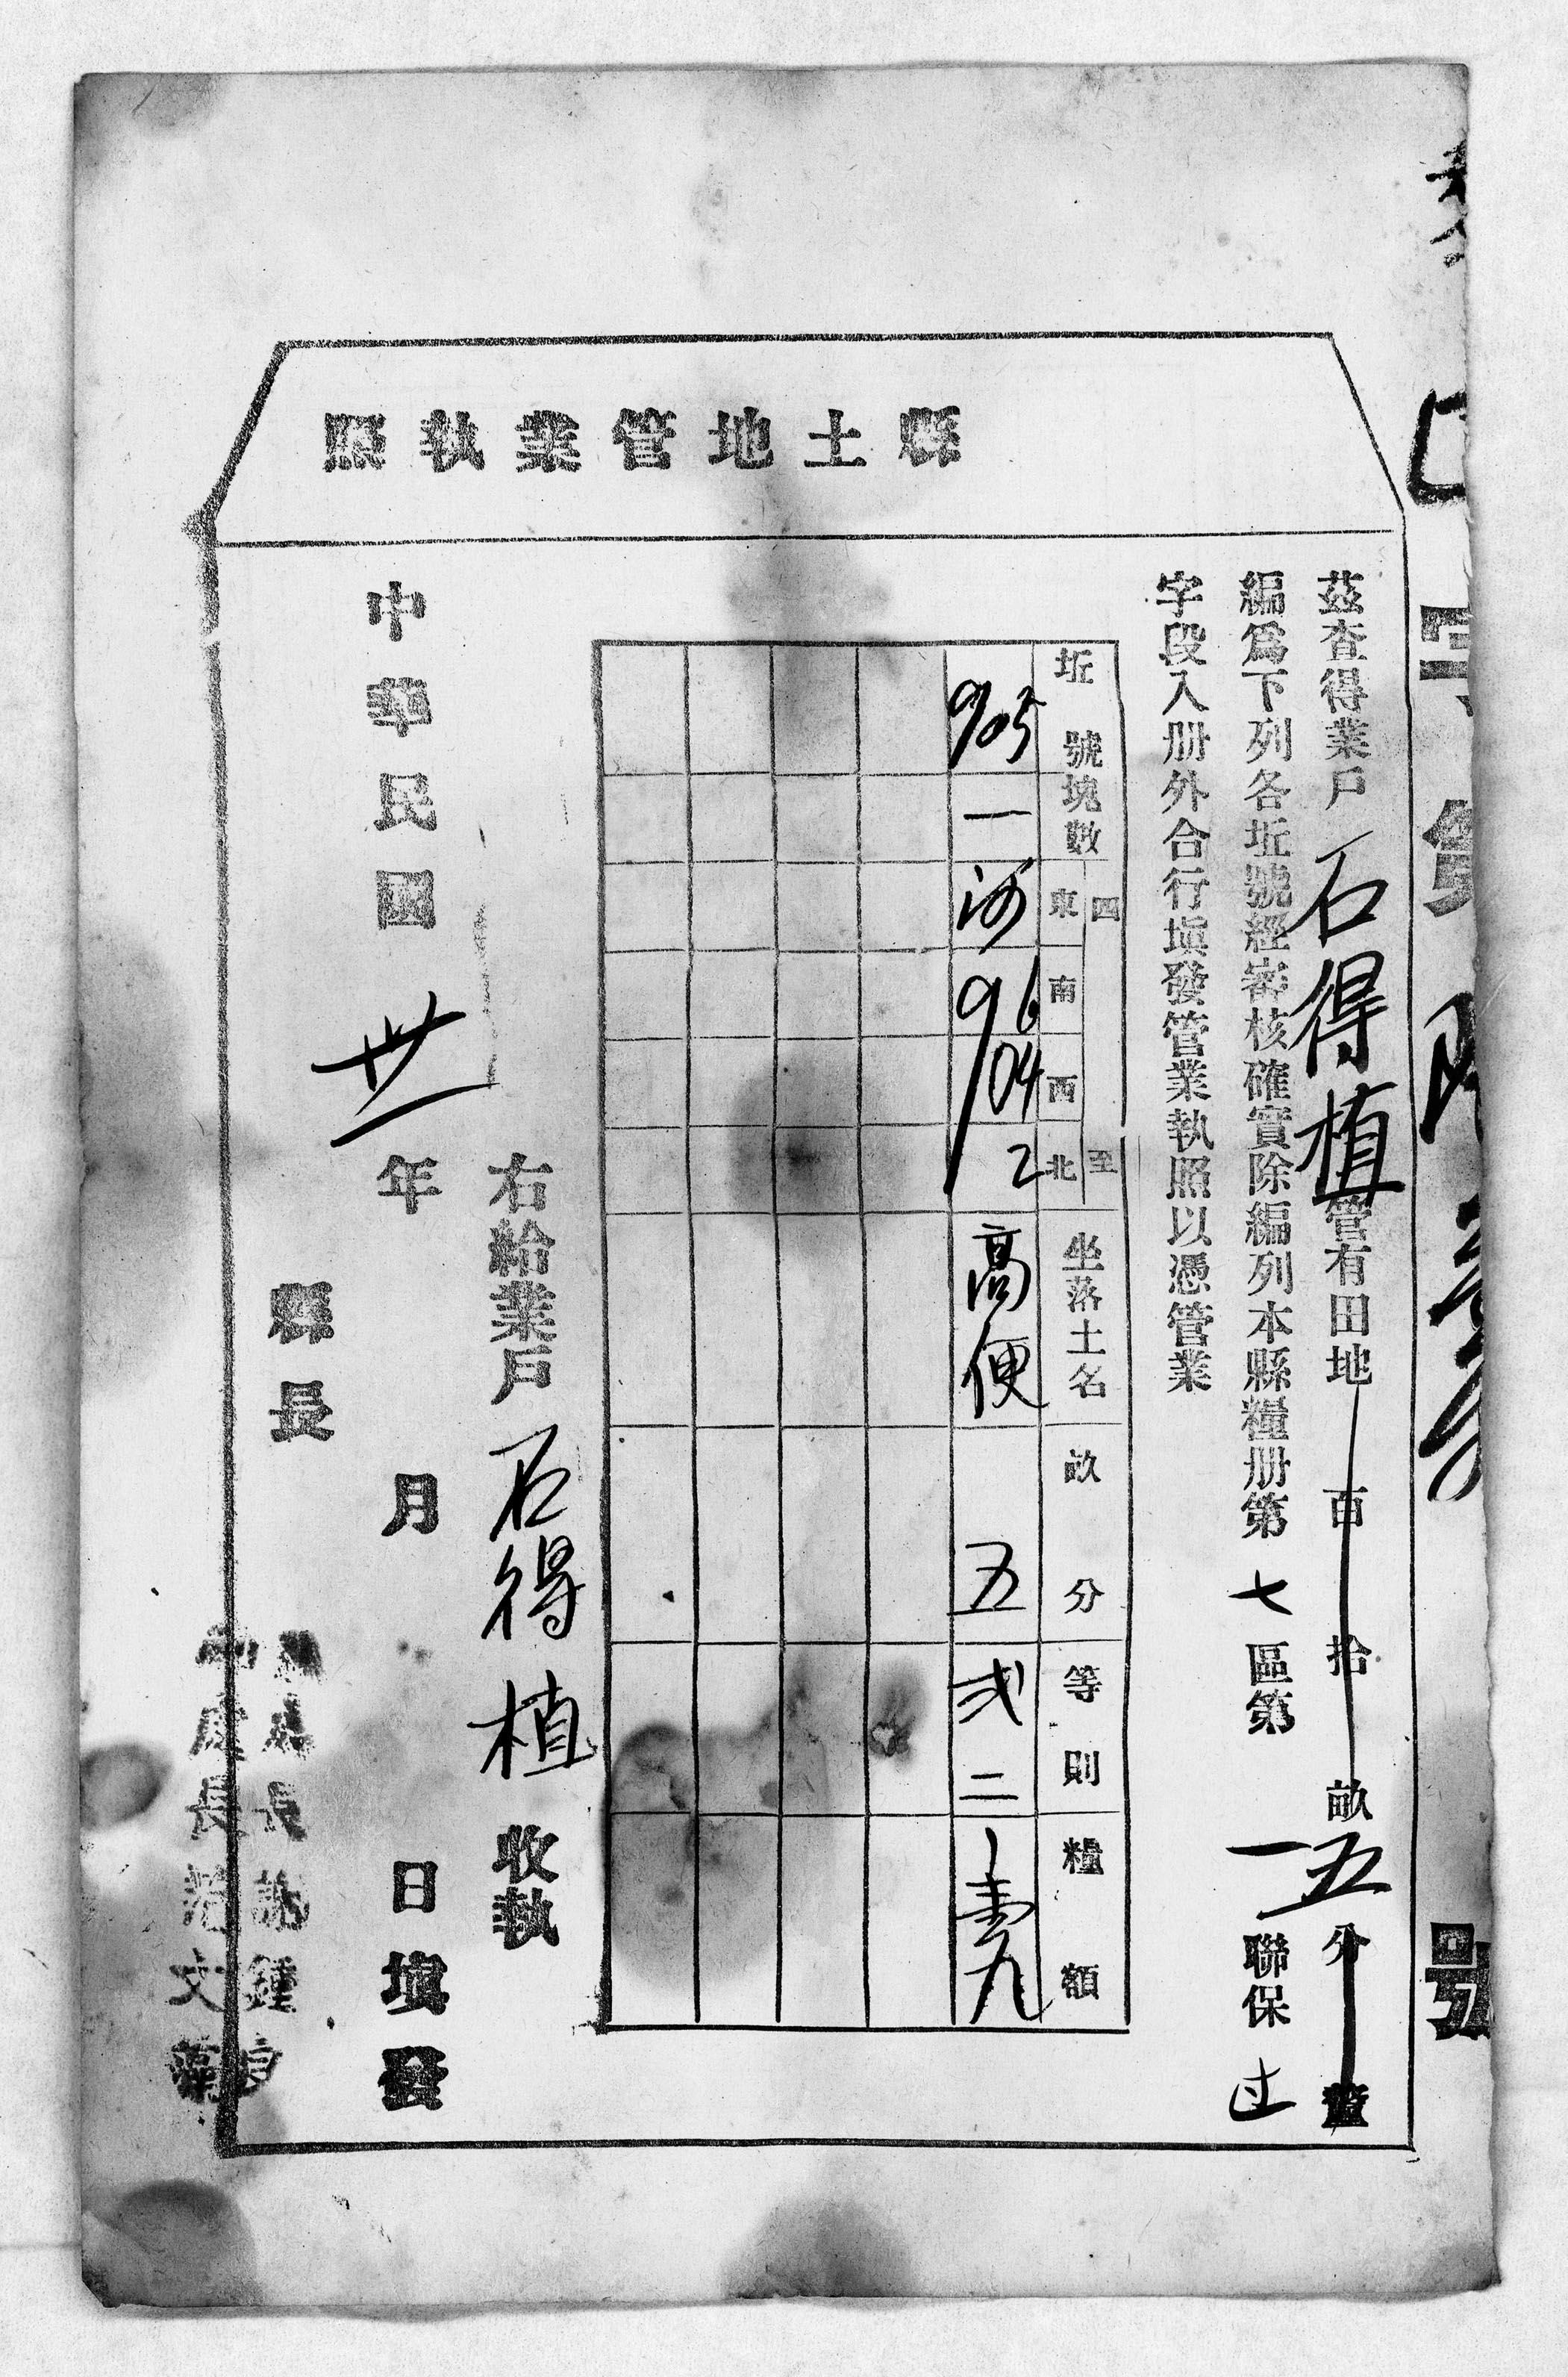 縣土地管業執照
字第 號
茲查得業戶石得植管有田地 百 拾 畝五分 釐
編爲下列各坵號經審核確實除編列本縣糧册第七區第一聯保过
字段入册外合行塡發管業執照以憑管業
坵號 塊數 四至 東 南 西 北 坐落土名 畝 分 等則 糧額
905 一 河 96 904 2 高便 五 弍二 壹九
右給業戶石得植收執
中華民國卅年 月 日塡發
縣長